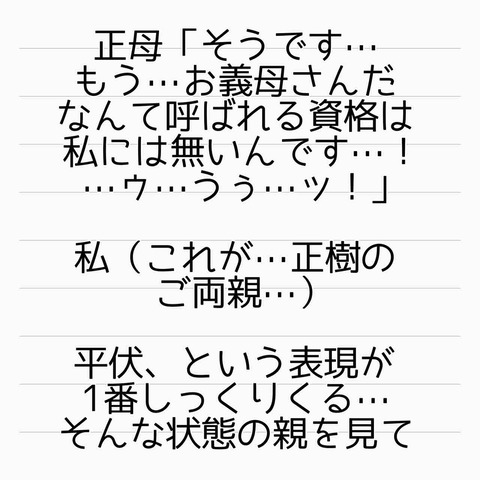 正母「そうです…
もう…お義母さんだ
なんて呼ばれる資格は
私には無いんです…！
…ゥ…うぅ…ッ！」
私（これが…正樹の
ご両親…）
平伏、という表現が
1番しっくりくる…
そんな状態の親を見て